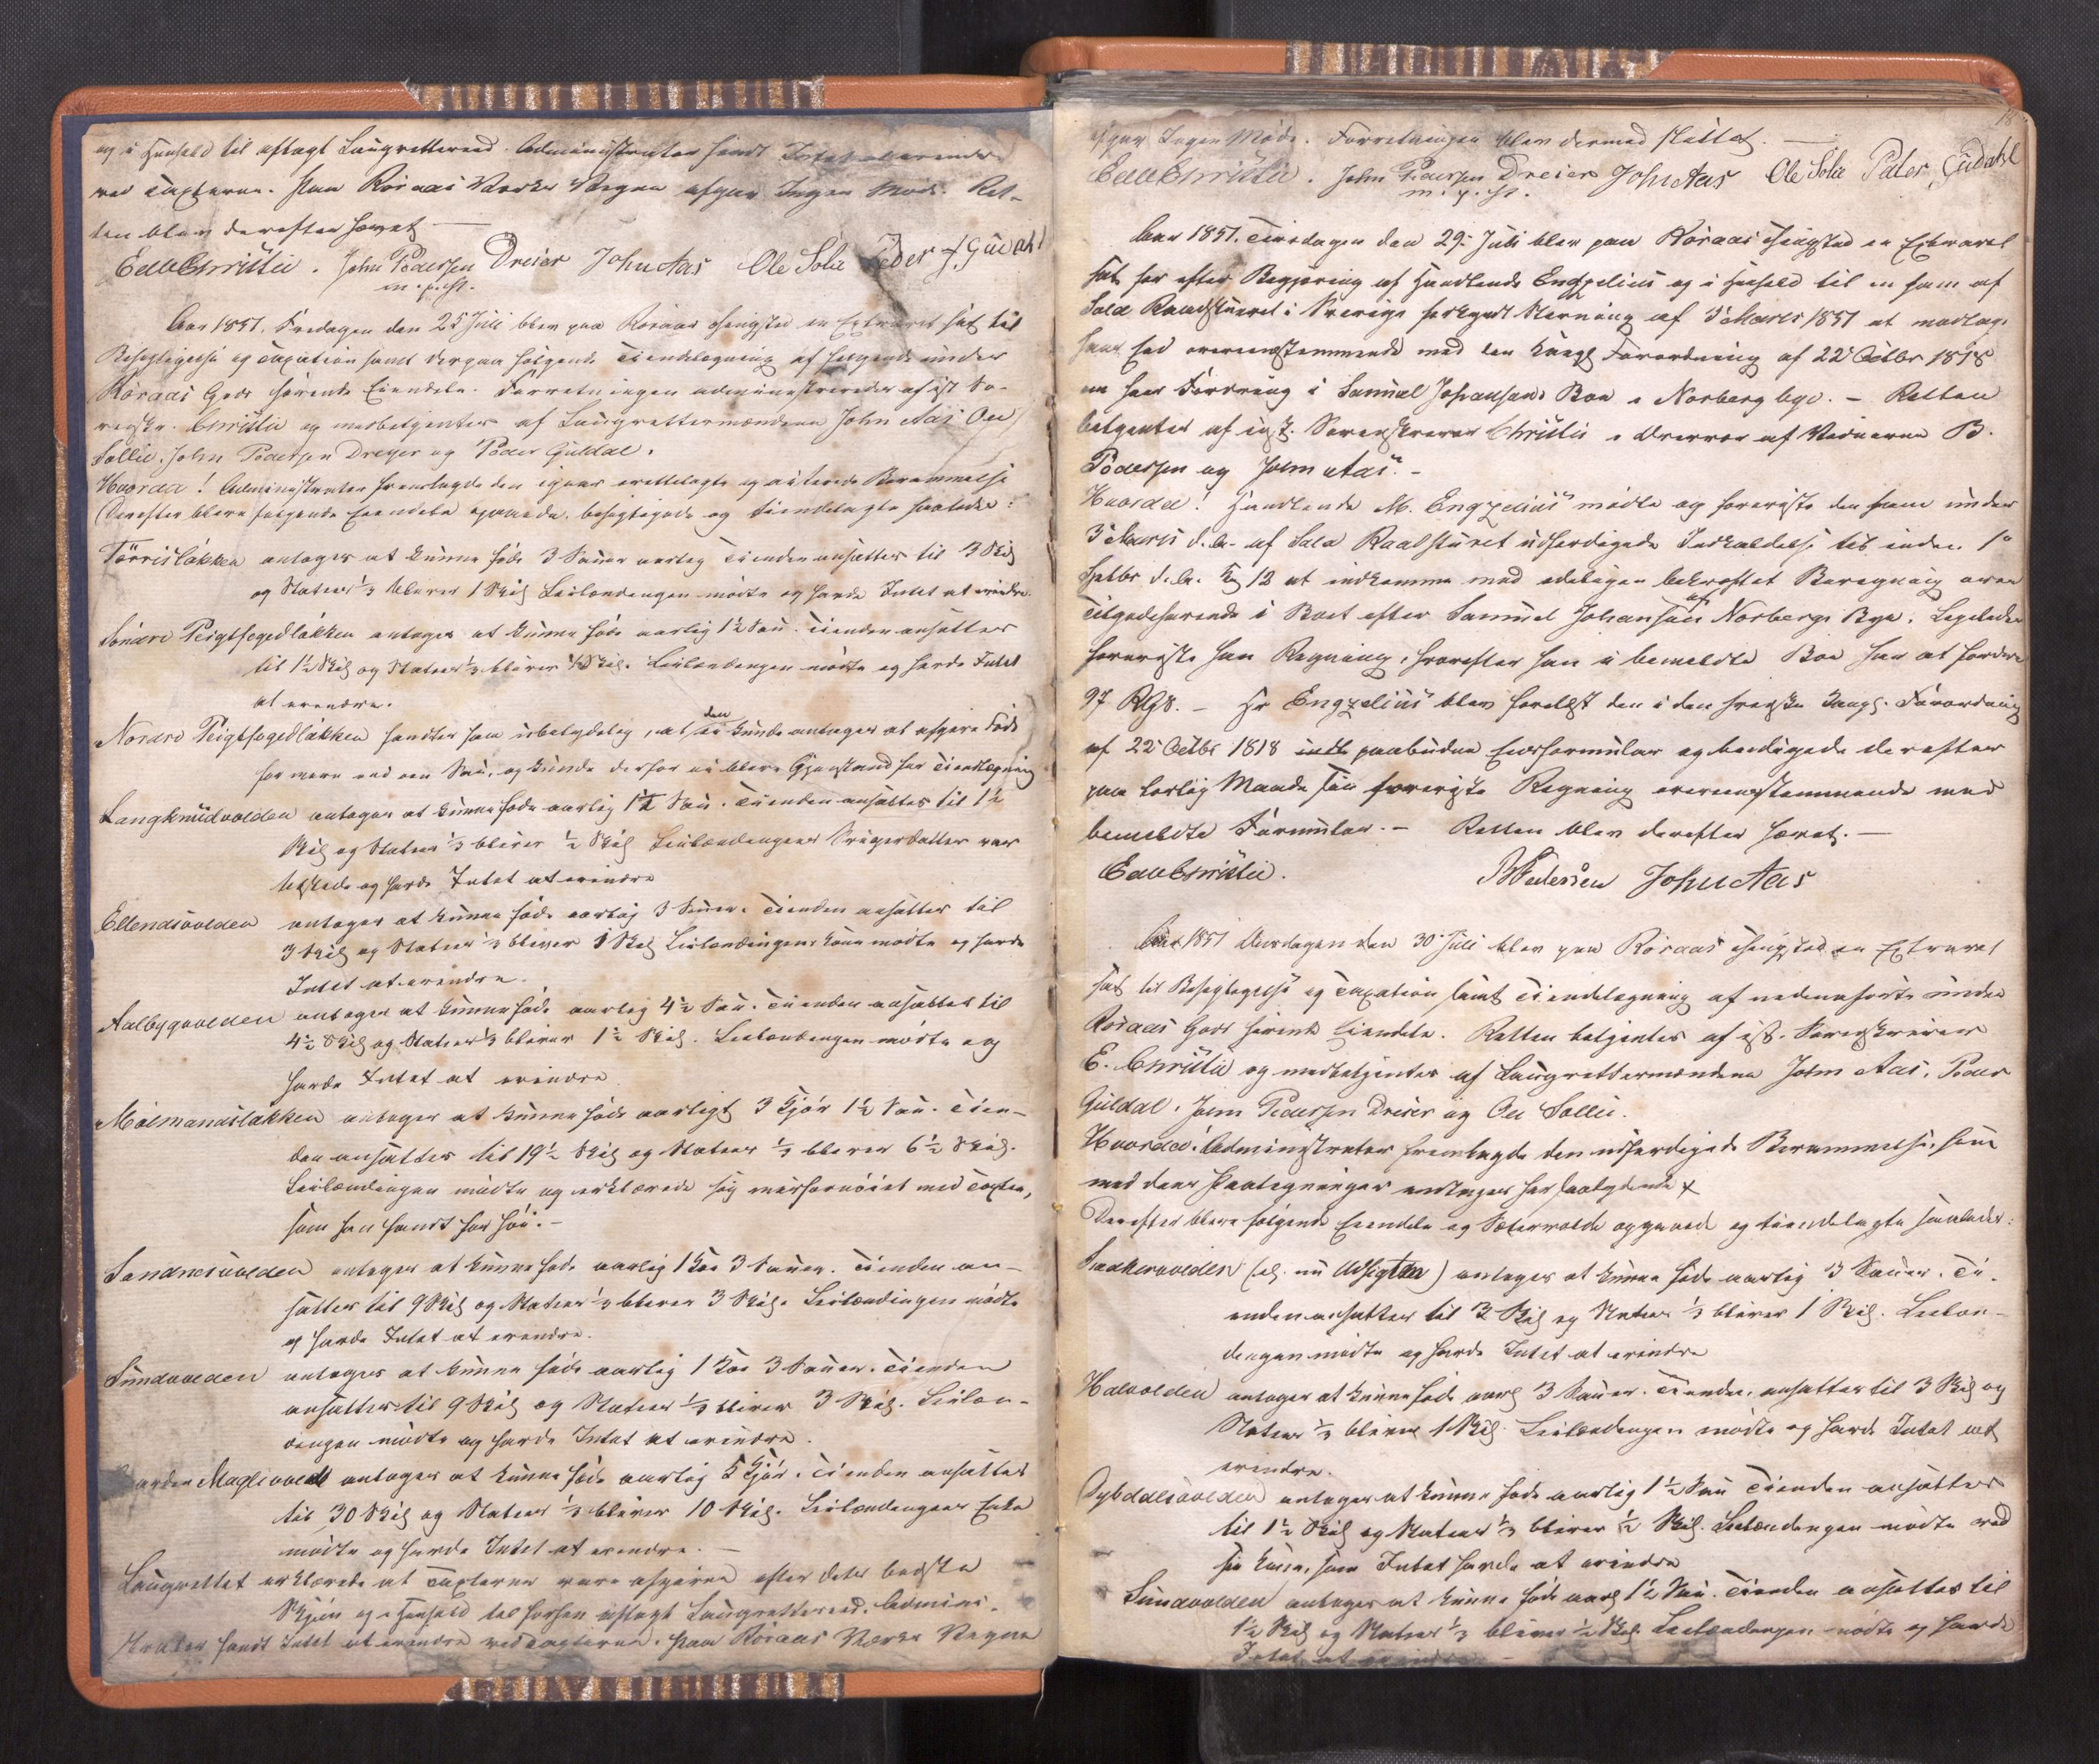 og i Henhold til aflagt Laugrettereed. Administrator fandt Intet at erindre
ved Taxterne. Paa Röraas Værks Vegne afgav Ingen Möde. Ret-
ten blev derefter hævet
Edv Christie. John Pedersen Dreier John Aas Ole Solie Peder J. Guldahl
m. p. P.
Aar 1851, Fredagen den 25 Juli blev paa Röraas Thingsted en Extraret sat til
Besigtigelse og Taxation samt derpaa følgende Tiendelægning af følgende under
Röraas Gods hörende Eiendele. Forretningen administreredes af cst So-
renskr. Christie og medbetjentes af Laugrettesmændene John Aas Ole
Sollie, John Pedersen Dreyer og Peder Guldal.
Hvorda! Administrator fremlagde den igaar irettelagte og acterede Berammelse
Derefter bleve følgende Eiendele opgaaede, besigtigede og tiendelagte saaledes:
Törrislökken antages at kunne föde 3 Sauer aarlig Tienden ansættes til 3 Skil
og Statens 1/3 bliver 1 Skil Leilændingen mödte og havde Intet at erindre.
Söndre Peigtfogedlökken antages at kunne föde aarlig 1½ Sau. Tienden ansættes
til 1½ Skil og Statens 1/3 bliver ½ Skil. Leilændingen mödte og havde Intet
at erindre.
Nordre Peigtfogedlökken fandtes saa ubetydelig, at den ei kunde antages at afgive Föde
for mere end een Sau, og kunde derfor ei blive Gjenstand for Tiendlægning
Langknudvolden antages at kunne föde aarlig 1½ Sau. Tienden ansættes til 1½
Skil og Statens 1/3 bliver ½ Skil Leilændingens Svigerdatter var
tilstede og havde Intet at erindre
Ellendsvolden antages at kunne föde aarlig 3 Sauer. Tienden ansættes til
3 Skil og Statens 1/3 bliver 1 Skil Leilændingens Kone mödte og havde
Intet at erindre.
Aalbygvolden antages at kunne föde aarlig 4½ Sau. Tienden ansættes til
4½ Skil og Statens 1/3 bliver 1½ Skil. Leilændingen mödte og
havde Intet at erindre
Malmanaslökken antages at kunne föde aarligt 3 Kjör 1½ Sau. Tien-
den ansættes til 19½ Skil og Statens 1/3 bliver 6½ Skil.
Leilændingen mödte og erklærede sig misfornöiet med Taxten,
som han fandt for höi. -
Sandnesvolden antages at kunne föde aarlig 1 Ko 3 Sauer. Tienden an-
sættes til 9 Skil og Statens 1/3 bliver 3 Skil. Leilændingen mödte
og havde Intet at erindre.
Sundvolden antages at kunne föde aarlig 1 Ko 3 Sauer. Tienden
ansættes til 9 Skil og Statens 1/3 bliver 3 Skil. Leilæn-
dingen mödte og havde Intet at erindre.
antages at kunne föde aarlig 5 Kjör. Tienden ansættes
til 30 Skil og Statens 1/3 bliver 10 Skil. Leilændingens Enke
mödte og havde Intet at erindre. -
Laugrettet erklærede at Taxterne vare afgivne efter dets bedste
Skjön og i Henhold til forhen aflagt Laugrettereed. Admini-
strator fandt Intet at erindre ved Taxterne. Paa Röraas Værks Vegne
afgav Ingen Möde. Forretningen blev dermed sluttet.
Edv Christie. John Pedersen Dreier John Aas Ole Solie Peder Guldahl
m. p. P.
Aar 1851. Tirsdagen den 29 Juli blev paa Röraas Thingsted en Extraret
sat for efter Begjæring af Handlende Engzelius og i Henhold til en fra af
Sala Raadstueret i Sverige Stævning af 3 Marts 1851 at modtage
hans Eed overensstemmende med den Kongl Forordning af 22 Octbr 1818
en hans Fordring i Samuel Johansons Boe i Norberg bye. - Retten
betjentes af cst. Sorenskriver Christie i Overvær af Vidnerne B.
Pedersen og John Aas. -
Hvorda! Handlende M. Engzelius mödte og foreviste den fra under
3 Marts d. A. af Sala Raadstueret udfærdigede Indkaldelse til inden 1
Septbr d. A. Kl 12 at indkomme med edeligen bekræftet Beregning over
Tilgodehavende i Boet efter Samuel Johanson af Norbergs Bye. Ligeledes
foreviste han Regning, hvorefter han i bemeldte Boe har at fordre
97 Rgs. - Hr Engzelius blev forelæst den i den svenske Kongl. Forordning
af 22 Octbr 1818 paabudne Eedsformular og beedigede derefter
paa lovlig Maade sin foreviste Regning overensstemmende med
bemeldte Formular. - Retten blev derefter hævet. -
Edv Christie. B Pedersen John Aas
Aar 1851 Onsdagen den 30 Juli blev paa Röraas Thingsted en Extraret
sat til Besigtigelse og Taxation samt Tiendelægning af nedenanförte under
Röraas Gods hörende Eiendele. Retten betjentes af cst. Sorenskriver
E. Christie og medbetjentes af Laugrettesmændene John Aas, Peder
Guldal, John Pedersen Dreier og Ole Sollie.
Hvorda! Administrator fremlagde den udfærdigede Berammelse, som
med dens Paategninger indtages her saalydende ✗
Derefter bleve følgende Eiendele og Sætervolde opgaaed og tiendelagte saaledes:
(el. nu Udsigten) antages at kunne föde aarlig 3 Sauer. Ti-
enden ansættes til 3 Skil og Statens 1/3 bliver 1 Skil. Leilæn-
dingen mödte og havde Intet at erindre
Halvolden antages at kunne föde aarl 3 Sauer. Tienden ansættes til 3 Skil og
Statens 1/3 bliver 1 Skil. Leilændingen mödte og havde Intet at
erindre.
Dybdalsvolden antages at kunne föde aarlig 1½ Sau Tienden ansættes
til 1½ Skil og Statens 1/3 bliver ½ Skil. Leilændingen mödte ved
sin Kone, som Intet havde at erindre
Sundvolden antages at kunne föde aarl 1½ Sau. Tienden ansættes til
1½ Skil og Statens 1/3 bliver ½ Skil. Leilændingen mödte og havde
Intet at erindre -